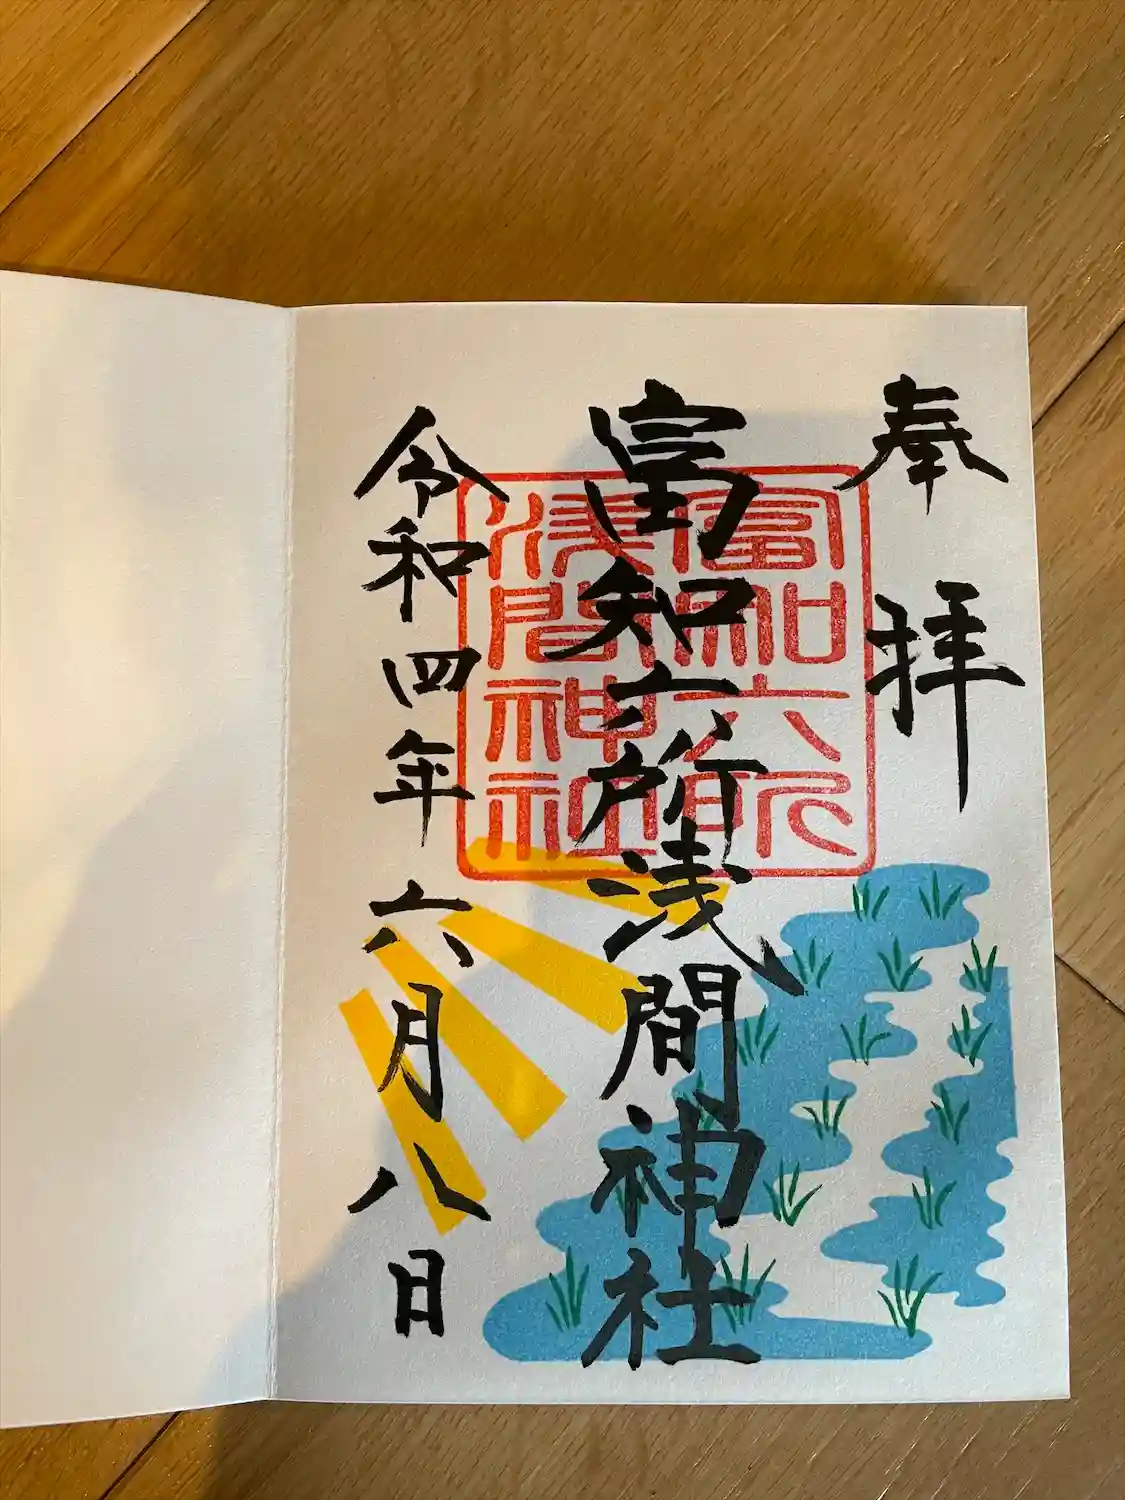 奉拝
富知六所浅間神社
令和四年六月八日
富知六所
浅間神社